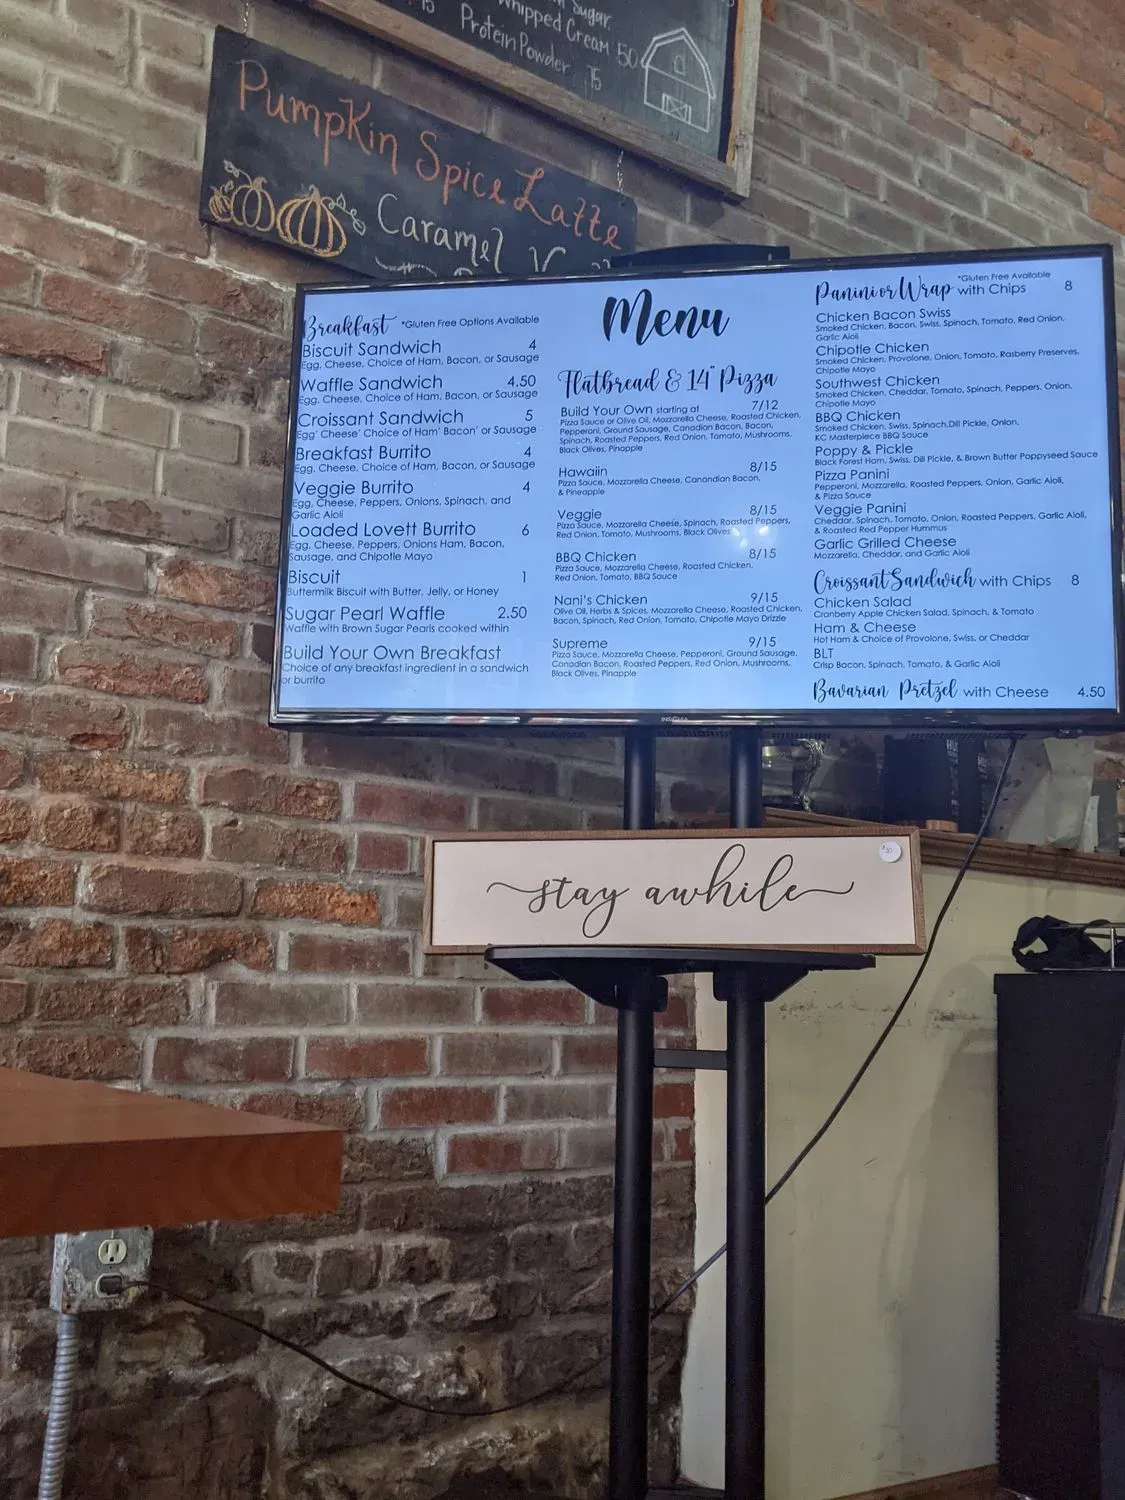 Sugar.
Whipped Cream 50
Protein Powder .75
Pumpkin Spice Latte
Caramel
Breakfast *Gluten Free Options Available
Biscuit Sandwich 4
Egg, Cheese, Choice of Ham, Bacon, or Sausage
Waffle Sandwich 4.50
Egg, Cheese, Choice of Ham, Bacon, or Sausage
Croissant Sandwich 5
Egg' Cheese' Choice of Ham' Bacon' or Sausage
Breakfast Burrito 4
Egg, Cheese, Choice of Ham, Bacon, or Sausage
Veggie Burrito 4
Egg, Cheese, Peppers, Onions, Spinach, and
Garlic Aioli
Loaded Lovett Burrito 6
Egg, Cheese, Peppers, Onions Ham, Bacon,
Sausage, and Chipotle Mayo
Biscuit 1
Buttermilk Biscuit with Butter, Jelly, or Honey
Sugar Pearl Waffle 2.50
Waffle with Brown Sugar Pearls cooked within
Build Your Own Breakfast
Choice of any breakfast ingredient in a sandwich
or burrito
Menu
Flatbread & 14" Pizza
Build Your Own starting at 7/12
Pizza Sauce or Olive Oil, Mozzarella Cheese, Roasted Chicken,
Pepperoni, Ground Sausage, Canadian Bacon, Bacon,
Spinach, Roasted Peppers, Red Onion, Tomato, Mushrooms,
Black Olives, Pinapple
Hawaiin 8/15
Pizza Sauce, Mozzarella Cheese, Canandian Bacon,
& Pineapple
Veggie 8/15
Pizza Sauce, Mozzarella Cheese, Spinach, Roasted Peppers,
Red Onion, Tomato, Mushrooms, Black Olives
BBQ Chicken 8/15
Pizza Sauce, Mozzarella Cheese, Roasted Chicken,
Red Onion, Tomato, BBQ Sauce
Nani's Chicken 9/15
Olive Oil, Herbs & Spices, Mozzarella Cheese, Roasted Chicken,
Bacon, Spinach, Red Onion, Tomato, Chipotle Mayo Drizzle
Supreme 9/15
Pizza Sauce, Mozzarella Cheese, Pepperoni, Ground Sausage,
Canadian Bacon, Roasted Peppers, Red Onion, Mushrooms,
Black Olives, Pinapple
*Gluten Free Available
Panini or Wrap with Chips 8
Chicken Bacon Swiss
Smoked Chicken, Bacon, Swiss, Spinach, Tomato, Red Onion,
Garlic Aioli
Chipotle Chicken
Smoked Chicken, Provolone, Onion, Tomato, Rasberry Preserves,
Chipotle Mayo
Southwest Chicken
Smoked Chicken, Cheddar, Tomato, Spinach, Peppers, Onion,
Chipotle Mayo
BBQ Chicken
Smoked Chicken, Swiss, Spinach,Dill Pickle, Onion,
KC Masterpiece BBQ Sauce
Poppy & Pickle
Black Forest Ham, Swiss, Dill Pickle, & Brown Butter Poppyseed Sauce
Pizza Panini
Pepperoni, Mozzarella, Roasted Peppers, Onion, Garlic Aioli,
& Pizza Sauce
Veggie Panini
Cheddar, Spinach, Tomato, Onion, Roasted Peppers, Garlic Aioli,
& Roasted Red Pepper Hummus
Garlic Grilled Cheese
Mozzarella, Cheddar, and Garlic Aioli
Croissant Sandwich with Chips 8
Chicken Salad
Cranberry Apple Chicken Salad, Spinach, & Tomato
Ham & Cheese
Hot Ham & Choice of Provolone, Swiss, or Cheddar
BLT
Crisp Bacon, Spinach, Tomato, & Garlic Aioli
Bavarian Pretzel with Cheese 4.50
INSIGNIA
stay awhile